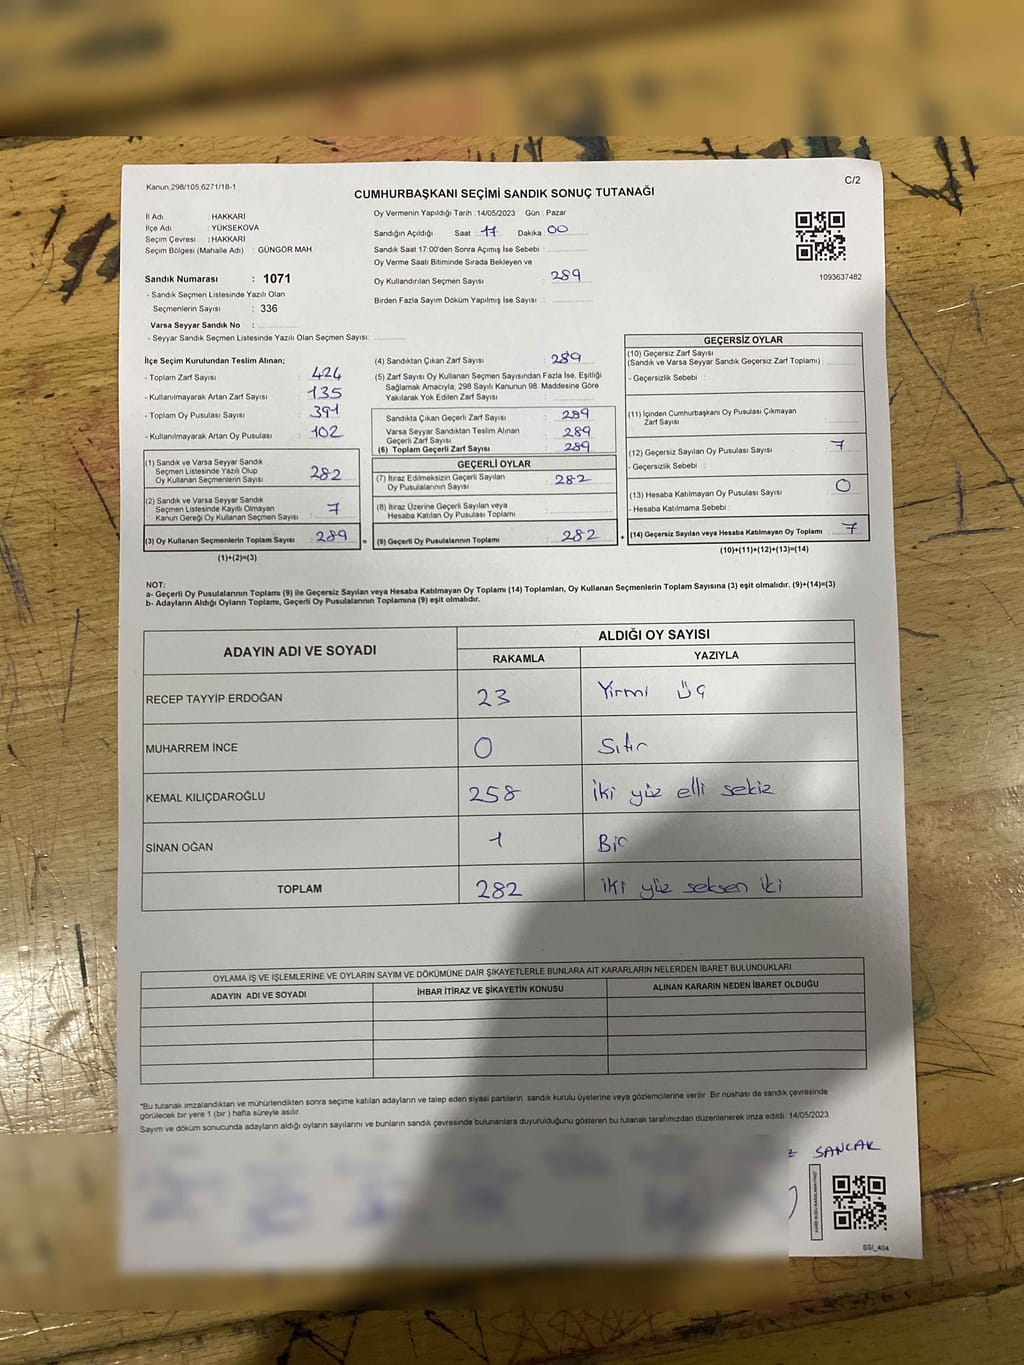 Kanun 298/105,6271/18-1
C/2
CUMHURBAŞKANI SEÇİMİ SANDIK SONUÇ TUTANAĞI
İl Adı : HAKKARİ
İlçe Adı : YÜKSEKOVA
Seçim Çevresi : HAKKARİ
Seçim Bölgesi (Mahalle Adı) : GÜNGÖR MAH
Sandık Numarası : 1071
- Sandık Seçmen Listesinde Yazılı Olan
Seçmenlerin Sayısı : 336
Varsa Seyyar Sandık No :
- Seyyar Sandık Seçmen Listesinde Yazılı Olan Seçmen Sayısı:
Oy Vermenin Yapıldığı Tarih : 14/05/2023 Gün : Pazar
Sandığın Açıldığı Saat : 17 Dakika : 00
Sandık Saat 17:00'den Sonra Açımış İse Sebebi :
Oy Verme Saati Bitiminde Sırada Bekleyen ve
Oy Kullandırılan Seçmen Sayısı : 289
Birden Fazla Sayım Döküm Yapılmış İse Sayısı :
1093637482
İlçe Seçim Kurulundan Teslim Alınan;
- Toplam Zarf Sayısı : 424
- Kullanılmayarak Artan Zarf Sayısı : 135
- Toplam Oy Pusulası Sayısı : 391
- Kullanılmayarak Artan Oy Pusulası : 102
(1) Sandık ve Varsa Seyyar Sandık
Seçmen Listesinde Yazılı Olup
Oy Kullanan Seçmenlerin Sayısı : 282
(2) Sandık ve Varsa Seyyar Sandık
Seçmen Listesinde Kayıtlı Olmayan
Kanun Gereği Oy Kullanan Seçmen Sayısı : 7
(3) Oy Kullanan Seçmenlerin Toplam Sayısı : 289
(1)+(2)=(3)
(4) Sandıktan Çıkan Zarf Sayısı : 289
(5) Zarf Sayısı Oy Kullanan Seçmen Sayısından Fazla İse, Eşitliği
Sağlamak Amacıyla, 298 Sayılı Kanunun 98. Maddesine Göre
Yakılarak Yok Edilen Zarf Sayısı :
Sandıkta Çıkan Geçerli Zarf Sayısı : 289
Varsa Seyyar Sandıktan Teslim Alınan
Geçerli Zarf Sayısı : 289
(6) Toplam Geçerli Zarf Sayısı : 289
GEÇERLİ OYLAR
(7) İtiraz Edilmeksizin Geçerli Sayılan
Oy Pusulalarının Sayısı : 282
(8) İtiraz Üzerine Geçerli Sayılan veya
Hesaba Katılan Oy Pusulası Toplamı :
= (9) Geçerli Oy Pusulalarının Toplamı : 282
GEÇERSİZ OYLAR
(10) Geçersiz Zarf Sayısı
(Sandık ve Varsa Seyyar Sandık Geçersiz Zarf Toplamı) :
- Geçersizlik Sebebi :
(11) İçinden Cumhurbaşkanı Oy Pusulası Çıkmayan
Zarf Sayısı :
(12) Geçersiz Sayılan Oy Pusulası Sayısı : 7
- Geçersizlik Sebebi :
(13) Hesaba Katılmayan Oy Pusulası Sayısı : 0
- Hesaba Katılmama Sebebi :
+ (14) Geçersiz Sayılan veya Hesaba Katılmayan Oy Toplamı : 7
(10)+(11)+(12)+(13)=(14)
NOT:
a- Geçerli Oy Pusulalarının Toplamı (9) ile Geçersiz Sayılan veya Hesaba Katılmayan Oy Toplamı (14) Toplamları, Oy Kullanan Seçmenlerin Toplam Sayısına (3) eşit olmalıdır. (9)+(14)=(3)
b- Adayların Aldığı Oyların Toplamı, Geçerli Oy Pusulalarının Toplamına (9) eşit olmalıdır.
ADAYIN ADI VE SOYADI
ALDIĞI OY SAYISI
RAKAMLA YAZIYLA
RECEP TAYYİP ERDOĞAN 23 Yirmi Üç
MUHARREM İNCE 0 Sıfır
KEMAL KILIÇDAROĞLU 258 İki yüz elli sekiz
SİNAN OĞAN 1 Bir
TOPLAM 282 İki yüz seksen iki
OYLAMA İŞ VE İŞLEMLERİNE VE OYLARIN SAYIM VE DÖKÜMÜNE DAİR ŞİKAYETLERLE BUNLARA AİT KARARLARIN NELERDEN İBARET BULUNDUKLARI
ADAYIN ADI VE SOYADI İHBAR İTİRAZ VE ŞİKAYETİN KONUSU ALINAN KARARIN NEDEN İBARET OLDUĞU
"Bu tutanak imzalandıktan ve mühürlendikten sonra seçime katılan adayların ve talep eden siyasi partilerin sandık kurulu üyelerine veya gözlemcilerine verilir. Bir nüshası da sandık çevresinde
görülecek bir yere 1 (bir ) hafta süreyle asılır.
Sayım ve döküm sonucunda adayların aldığı oyların sayılarını ve bunların sandık çevresinde bulunanlara duyurulduğunu gösteren bu tutanak tarafımızdan düzenlenerek imza edildi. 14/05/2023
SANCAK
SSI_404